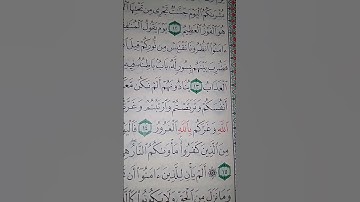 بشرىكم اليوم جنت تجرى من تحتها
هو الفوز العظيم ١٢ يوم يقول المنف
ءامنوا انظرونا نقتبس من نوركم قيل ا
فضرب بينهم بسور له باب باطنه فيه
العذاب ١٣ ينادونهم ألم نكن معكم
أنفسكم وتربصتم وارتبتم وغر
الله وغركم بالله الغرور ١٤ فالي
من الذين كفروا مأوىكم النار
١٥ ألم يأن للذين ءامنوا أن
وما نزل من الحق ولا يكونوا كال